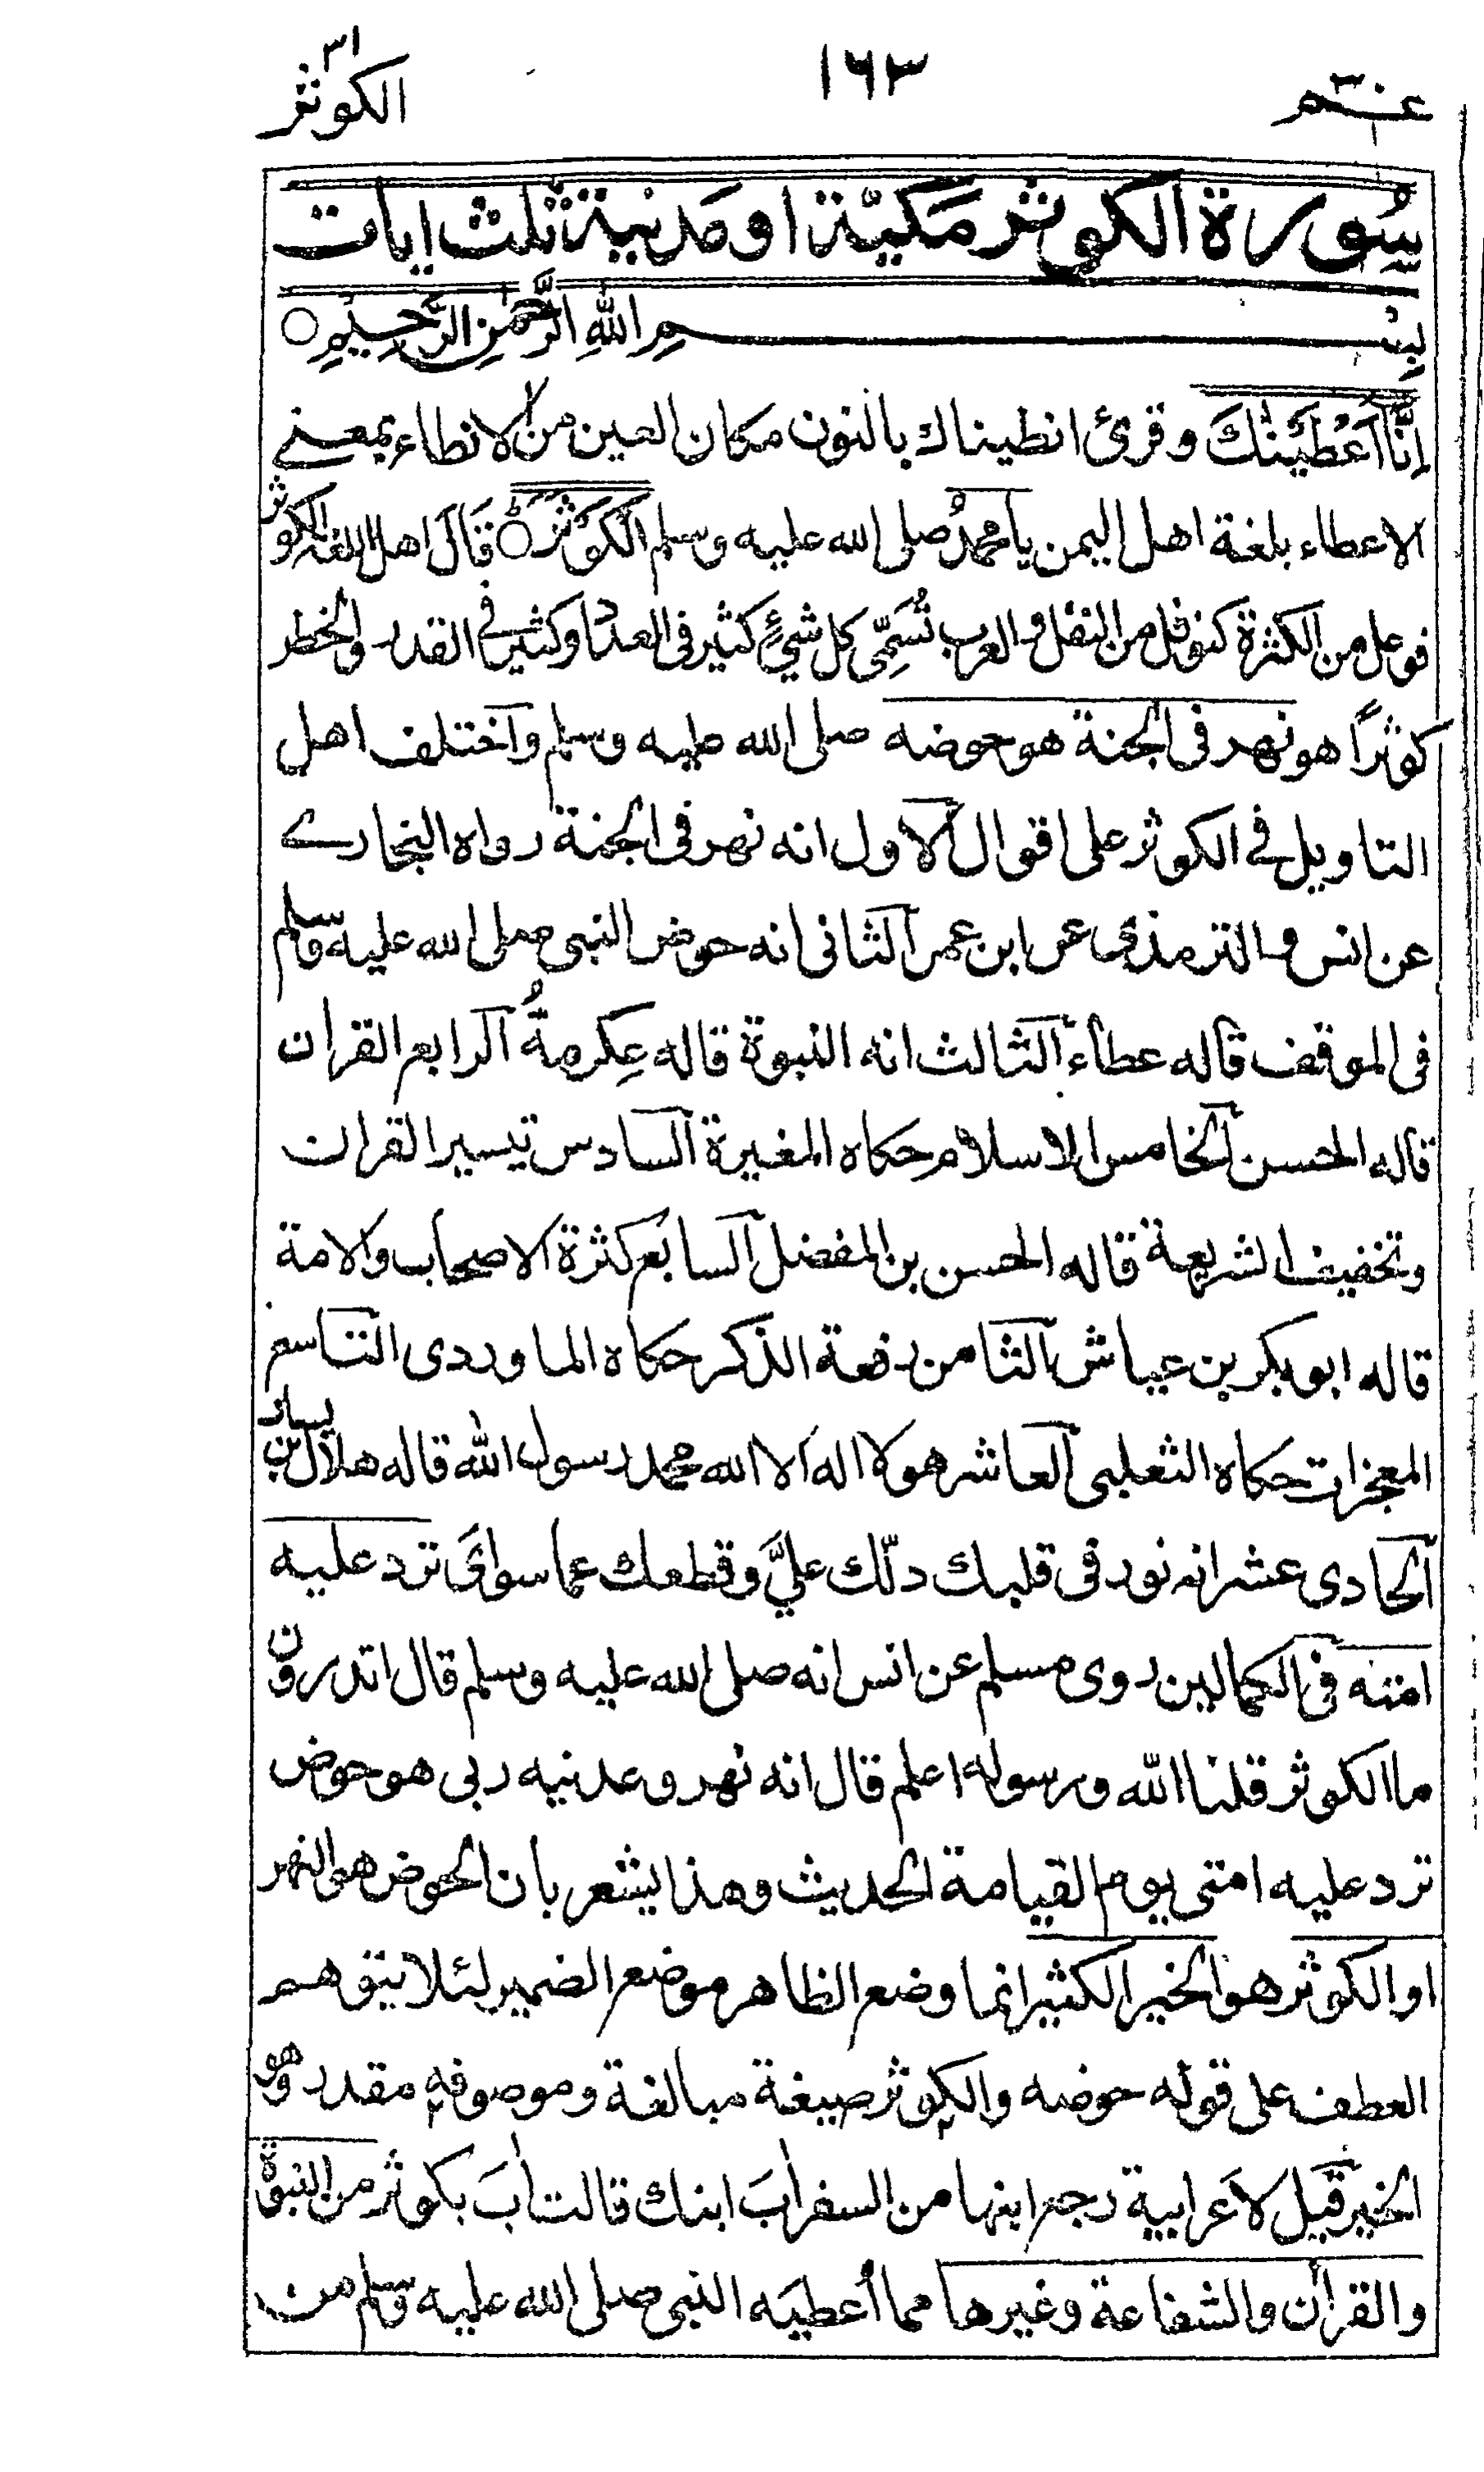 عم ١٦٣ ٣١ الكوثر
سُورة الكوثر مكيّة او مدنية ثلث ايات
بِسْمِ اللهِ الرَّحْمٰنِ الرَّحِيْمِ ○
اِنَّا اَعْطَيْنٰكَ وقرئ انطيناك بالنون مكان العين من الانطاء بمعنے
الاعطاء بلغة اهل اليمن يا محمدُ صلى الله عليه وسلم الْكَوْثَرَ ○ قَالَ اهل اللغة الكوثر
فوعل من الكثرة كنوفل من النفل والعرب تُسَمِّى كل شئٍ كثير فى العدد او كثير فے القدر والخطر
كوثرًا هو نهر فى الجنة هو حوضه صلى الله عليه وسلم واختلف اهل
التاويل فے الكوثر على اقوال الاول انه نهر فى الجنة رواه البخارے
عن انس والترمذى عن ابن عمر الثانى انه حوض النبى صلى الله عليه وسلم
فى الموقف قاله عطاء الثالث انه النبوة قاله عِكرمةُ الرابع القران
قاله الحسن الخامس الاسلام حكاه المغيرة السادس تيسير القران
وتخفيف الشريعة قاله الحسن بن المفضل السابع كثرة الاصحاب والامة
قاله ابو بكر بن عياش الثامن رفعة الذكر حكاه الماوردى التاسع
المعجزات حكاه الثعلبى العاشر هو لا اله الا الله محمد رسول الله قاله هلال بن يسار
الحادى عشر انه نور فى قلبك دلّك علىَّ وقطعك عما سواىَ ترد عليه
امته فى الكمالين روى مسلم عن انس انه صلى الله عليه وسلم قال اتدرون
ما الكوثر قلنا الله ورسوله اعلم قال انه نهر وعدنيه ربى هو حوض
ترد عليه امتى يوم القيامة الحديث وهذا يشعر بان الحوض هو النهر
او الكوثر هو الخير الكثير انما وضع الظاهر موضع الضمير لئلا يتوهم
العطف على قوله حوضه والكوثر صيغة مبالغة وموصوفه مقدر وهو
الخير قيل لاعرابية رجع ابنها من السفر اٰبَ ابنك قالت اٰبَ بكوثر من النبوة
والقران والشفاعة وغيرها مما اُعطيَه النبى صلى الله عليه وسلم من